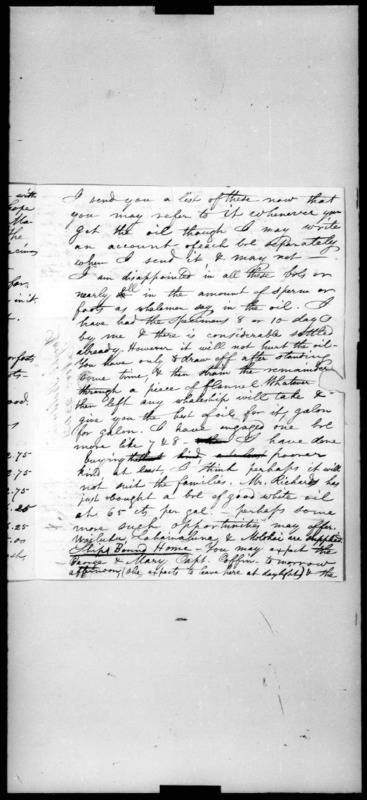 I send you a list of these now that
you may refer to it whenever you
get the oil though I may write
an account of each bbl seperately
when I send it & may not —
I am disappointed in all these bbls or
nearly all in the amount of sperm or
foots as whalemen say in the oil. I
have had the specimens 8 or 10 days
by me & there is considerable settled
already. However it will not hurt the oil.
You have only to draw off after standing
some time, & then strain the remainder
through a piece of flannel. Whatever
then left any whaleship will take &
give you the best of oil for it, galon
for galon. I have engaged one bbl
more like 7 & 8 - I have done
buying poorer
kind at least, I think perhaps it will
not suit the families. Mr. Richards has
just bought a bbl of good white oil
at 65 cts per gal - perhaps some
more such opportunities may offer.
Wailuku, Lahainaluna, & Molokai are supplied
Ships Bound Home. You may expect the
George & Mary, Capt. Coffin tomorrow
afternoon, (she expects to leave here at daylight) & the
with
hope
the
for
in it
foots
good,
2.75
2.75
2.75
5.25
5.25
5.00